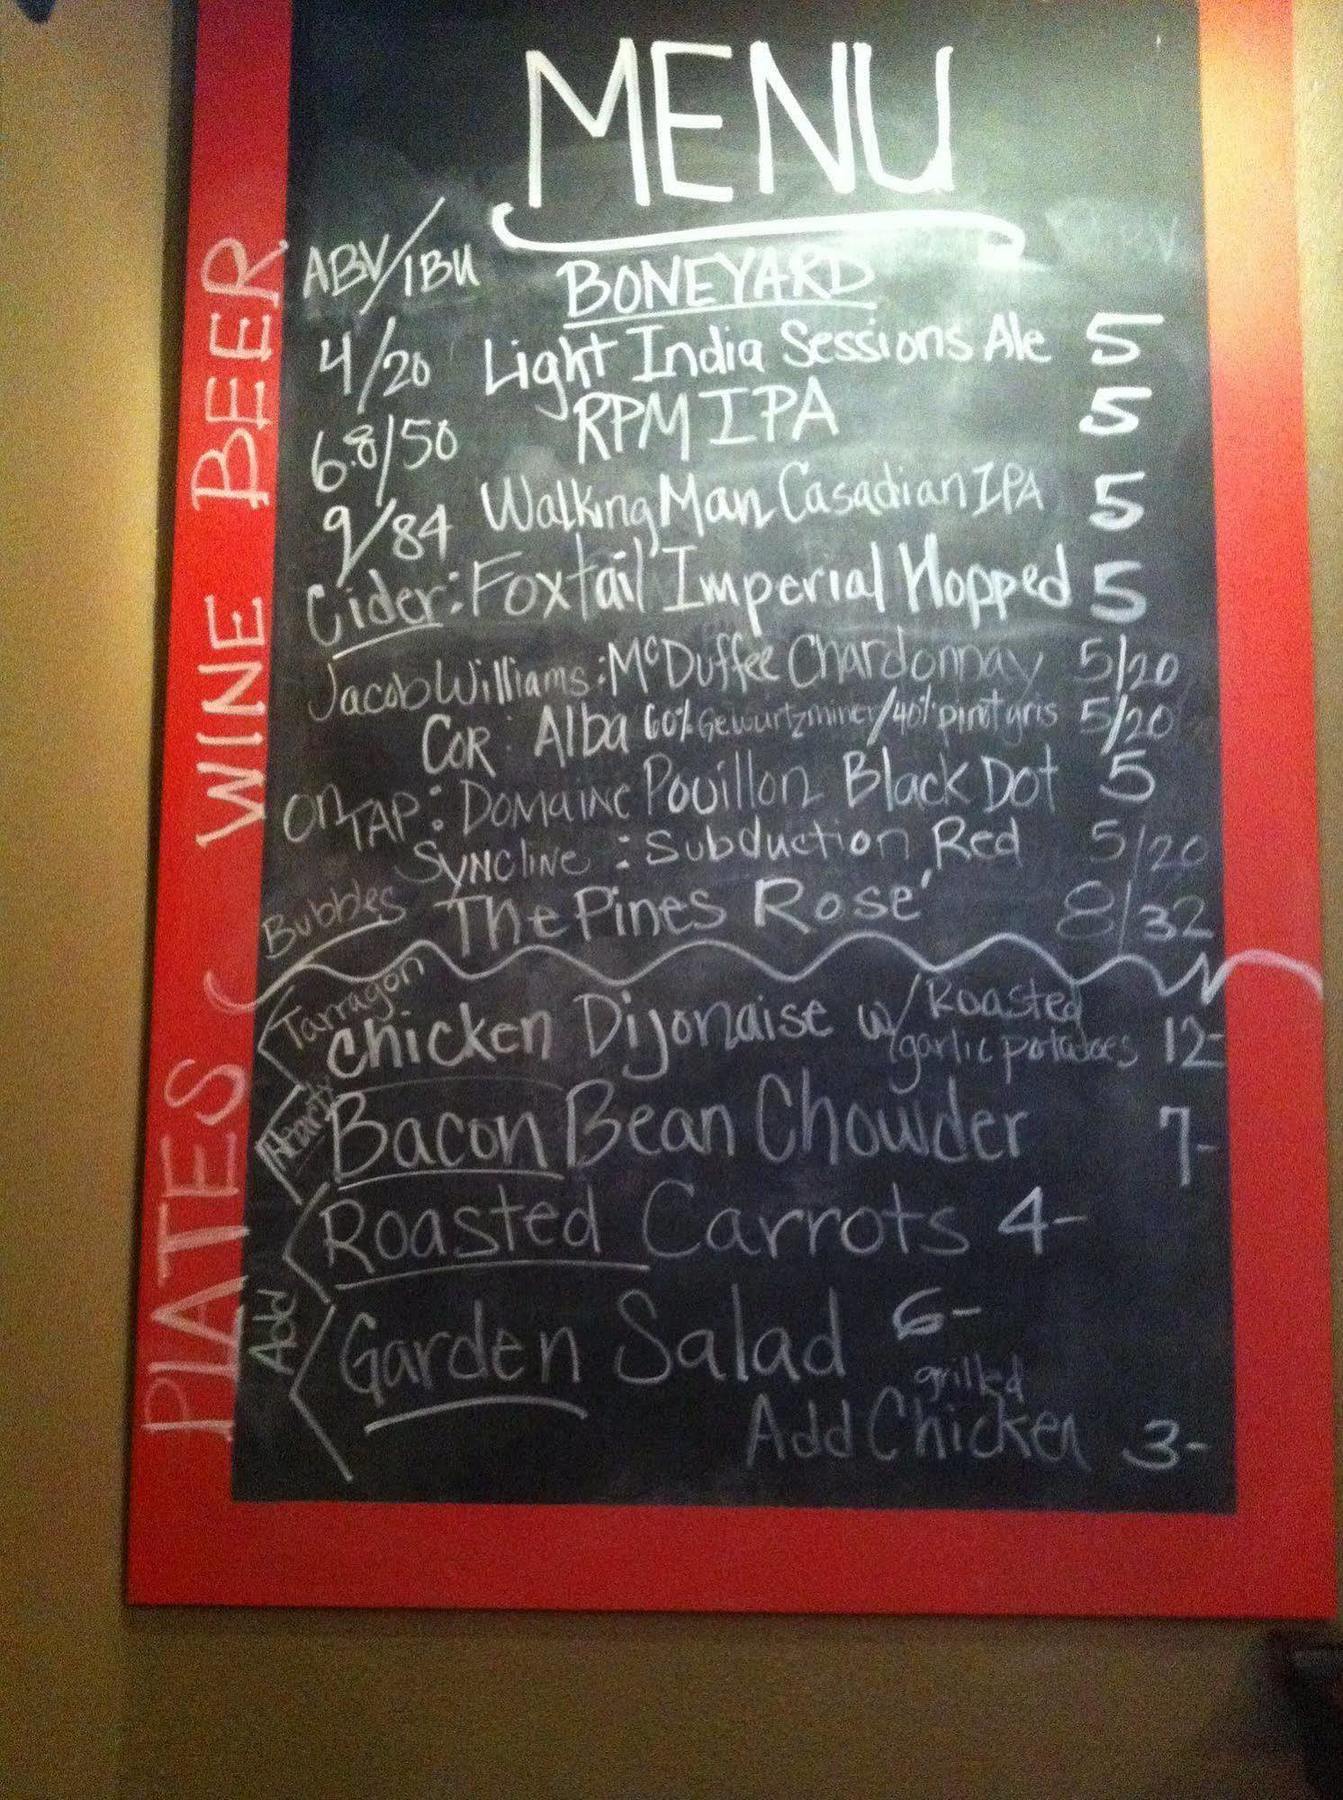 MENU
ABV/IBU BONEYARD
4/20 Light India Sessions Ale 5
6.8/50 RPM IPA 5
9/84 Walking Man Casadian IPA 5
Cider: Foxtail Imperial Hopped 5
Jacob Williams: McDuffee Chardonnay 5/20
COR: Alba 60% Gewurtzminer/40% pinot gris 5/20
on TAP: DOMAINE Pouillon Black Dot 5
SYNCline: Subduction Red 5/20
Bubbles The Pines Rosé 8/32
Tarragon
Chicken Dijonaise w/ Roasted garlic potatoes 12-
Hearty Bacon Bean Chowder 7-
Roasted Carrots 4-
Add
Garden Salad 6-
grilled
Add Chicken 3-
BEER
WINE
PLATES